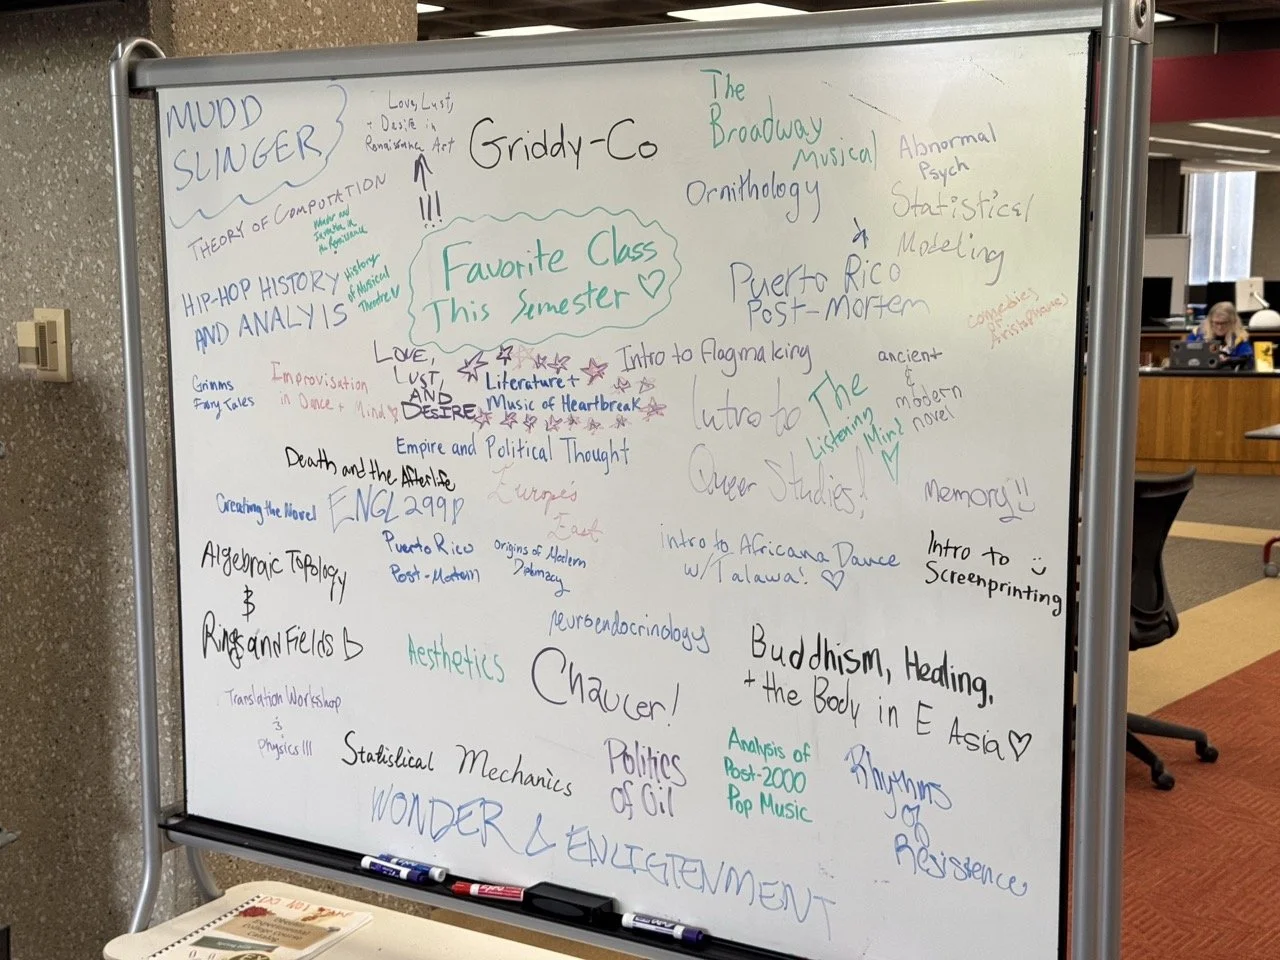 MUDD
SLINGER
Love, Lust,
+ Desire in
Renaissance Art
!!!
Griddy-Co
The
Broadway
Musical
Ornithology
Abnormal
Psych
Statistical
Modeling
THEORY OF COMPUTATION
in
the Renaissance
HIP-HOP HISTORY
AND ANALYIS
History
of Musical
Theatre ♡
Favorite Class
This Semester ♡
&
Puerto Rico
Post-Mortem
Comedies
of
Aristophanes
Grimms
Fairy Tales
Improvisation
in Dance + Mind ♡
LOVE,
LUST,
AND
DESIRE
Literature +
Music of Heartbreak
Intro to Flagmaking
ancient
&
modern
novel
Intro to
Queer Studies!
The
Listening
Mind
♡
Empire and Political Thought
Death and the Afterlife
Creating the Novel
ENGL 299
Europe's
East
Memory!!
Algebraic Topology
&
Rings and Fields
Puerto Rico
Post-Mortem
Origins of Modern
Diplomacy
intro to Africana Dance
w/ Talawa! ♡
Intro to
Screenprinting
neuroendocrinology
Aesthetics
Chaucer!
Buddhism, Healing,
+ the Body in E Asia ♡
Translation Workshop
&
Physics 111
Statistical Mechanics
Politics
of Oil
Analysis of
Post-2000
Pop Music
Rhythms
of
Resistence
WONDER & ENLIGTENMENT
DO NOT
Oberlin
Experimental
College Course
Catalog